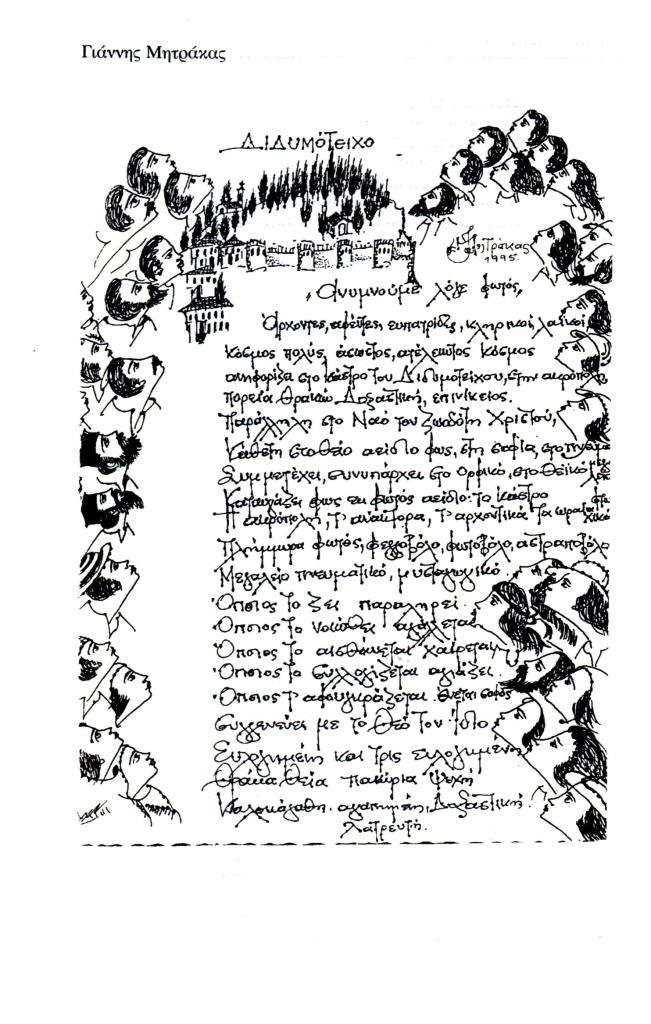 Γιάννης Μητράκας
ΔΙΔΥΜΟΤΕΙΧΟ
Μητράκας
1995
Ανυμνούμε λόγε φωτός,
Άρχοντες, αφέντες, ευπατρίδες, κληρικοί, λαϊκοί
κόσμος πολύς, άσωστος, ατέλειωτος κόσμος
ανηφορίζει στο κάστρο του Διδυμοτείχου, στην ακρόπολη
πορεία Θρακών Δοξαστική, επινίκειος.
Παράκληση στο Ναό του Ζωοδότη Χριστού,
κατάθεση στο θείο αείδιο φως, στη σοφία, στο πνεύμα
Συμμετέχει, συνυπάρχει στο Ορφικό, στο Θεϊκό
Καταυγάζει φως εκ φωτός αείδιο: Το κάστρο
Η ακρόπολη, τ' ανάκτορα, τ' αρχοντικά τα ωραία
Πλήμμυρα φωτός, φεγγοβόλο, φωτοβόλο, αστραποβόλο
Μεγαλείο πνευματικό, μυσταγωγικό
Όποιος το ζει παρατηρεί.
Όποιος το νοιώθει αγάλλεται
Όποιος το αισθάνεται χαίρεται
Όποιος το συλλογίζεται αγιάζει.
Όποιος τ' αφουγκράζεται γίνεται σοφός
Συγγενεύει με το Θεό τον ίδιο
Ευλογημένη και τρις ευλογημένη
Θράκα θεία πανώρια ψυχή
Καλοκάγαθη, αγαπημένη, Δοξαστική.
Λατρευτή.